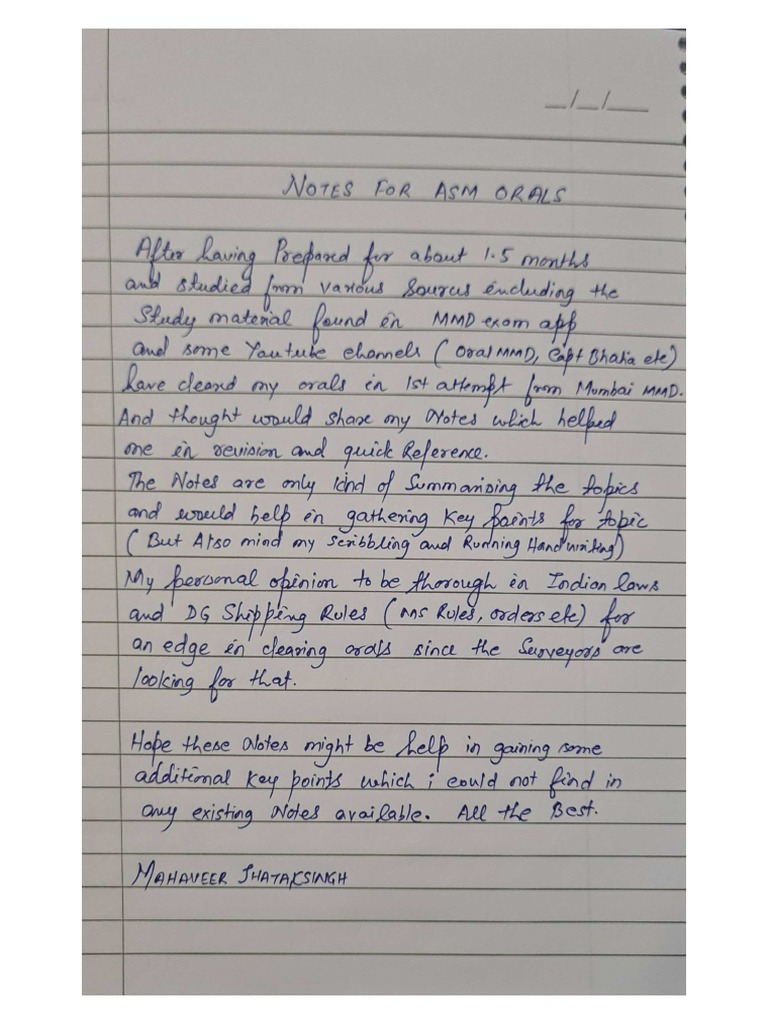 _/_/__
NOTES FOR ASM ORALS
After having Prepared for about 1.5 months
and studied from various Sources including the
Study material found in MMD exam app
and some Youtube channels (Oral MMD, Capt Bhatia etc)
have cleared my orals in 1st attempt from Mumbai MMD.
And thought would share my Notes which helped
me in revision and quick Reference.
The Notes are only kind of Summarising the topics
and would help in gathering Key points for topic
(But Also mind my scribbling and Running Handwriting)
My personal opinion to be thorough in Indian laws
and DG Shipping Rules (MS Rules, orders etc) for
an edge in clearing orals since the Surveyors are
looking for that.
Hope these Notes might be help in gaining some
additional Key points which i could not find in
any existing Notes available. All the Best.
MAHAVEER JHATAKSINGH